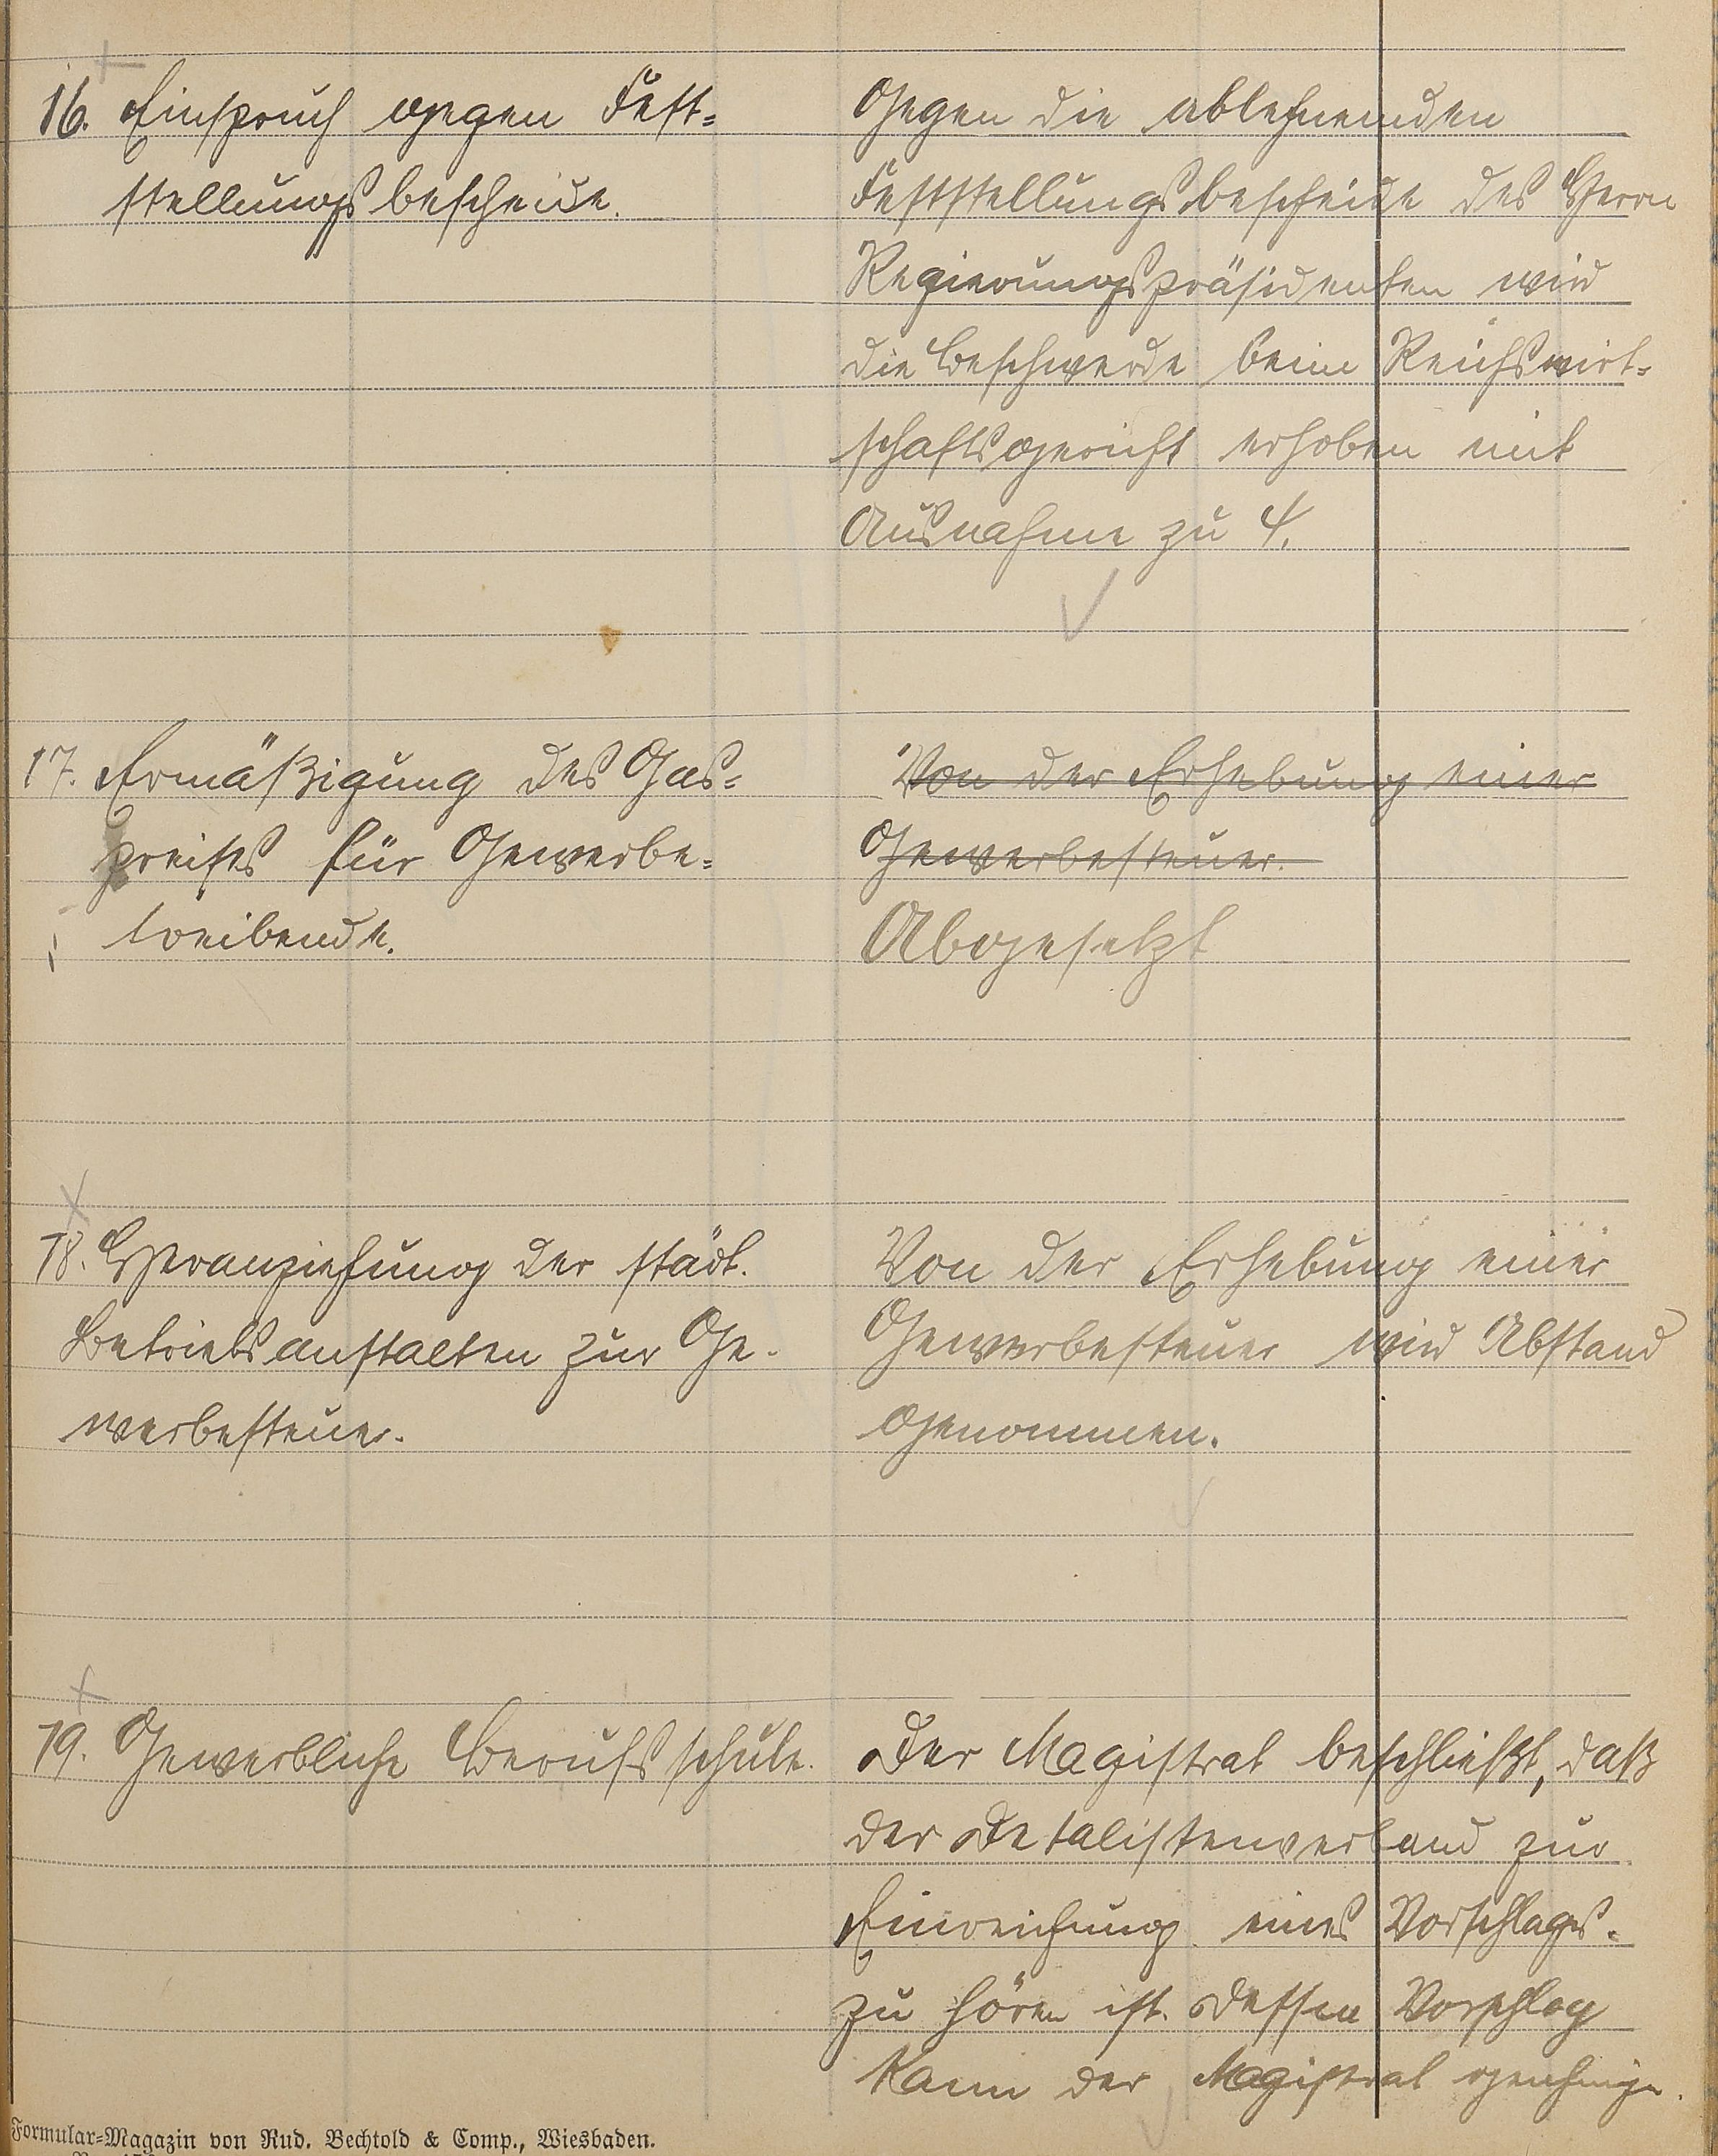 16. Einspruch gegen Fest-
stellungsbescheide.
Gegen die ablehnenden
Feststellungsbescheide des Herrn
Regierungspräsidenten wird
die Beschwerde beim Reichswirt-
schaftsgericht erhoben mit
Ausnahme zu 4.
17. Ermäßigung des Gas-
preises für Gewerbe-
treibende.
Von der Erhebung einer
Gewerbesteuer.
Abgesetzt
18. Heranziehung der städt.
Betriebsanstalten zur Ge-
werbesteuer.
Von der Erhebung einer
Gewerbesteuer wird Abstand
genommen.
19. Gewerbliche Berufsschule.
Der Magistrat beschließt, daß
der Detalistenverband zur
Einreichung eines Vorschlages.
zu hören ist. Dessen Vorschlag
kann der Magistrat
Formular-Magazin von Rud. Bechtold & Comp., Wiesbaden.